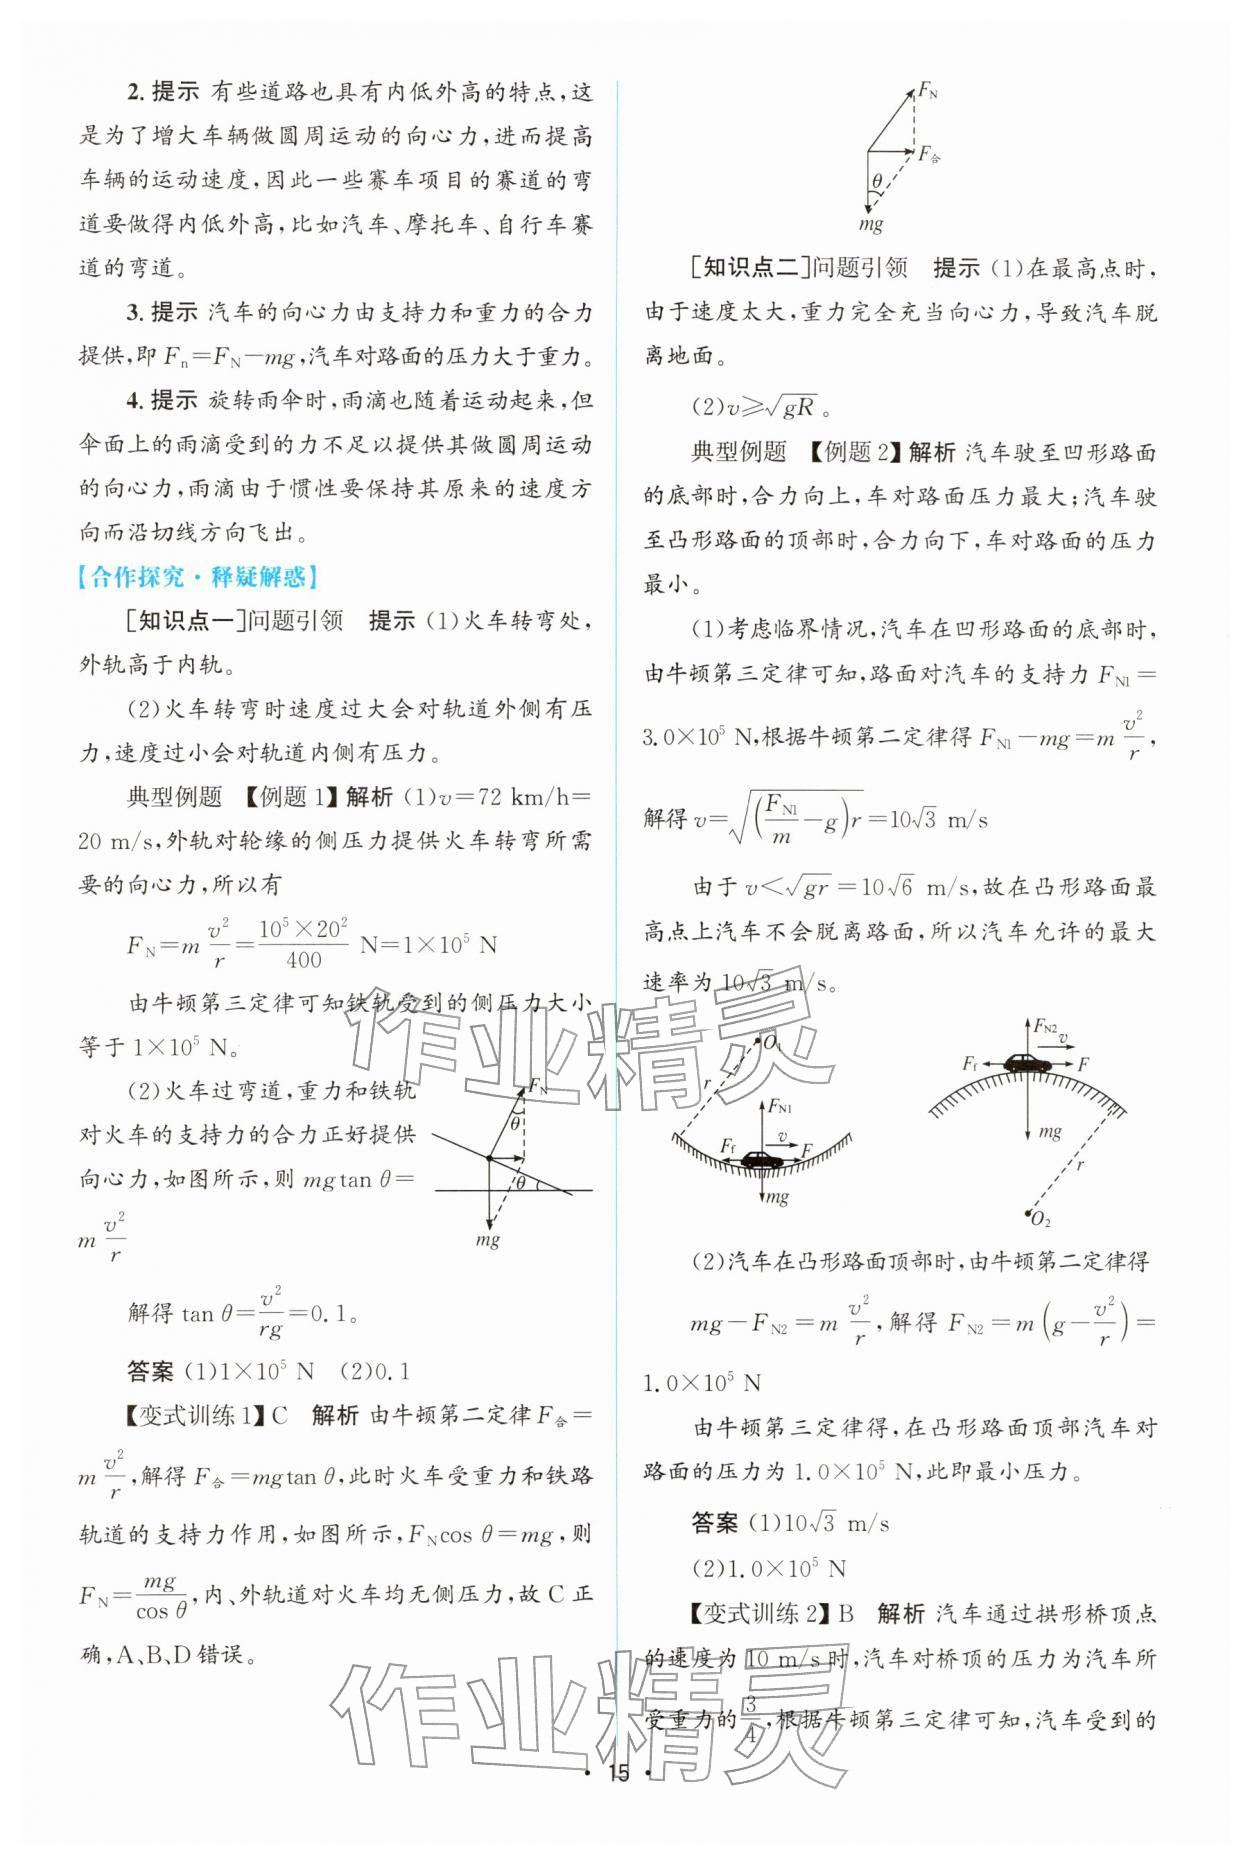 2. 提示 有些道路也具有内低外高的特点,这
是为了增大车辆做圆周运动的向心力,进而提高
车辆的运动速度,因此一些赛车项目的赛道的弯
道要做得内低外高,比如汽车、摩托车、自行车赛
道的弯道。
3. 提示 汽车的向心力由支持力和重力的合力
提供,即 Fₙ=F_N-mg,汽车对路面的压力大于重力。
4. 提示 旋转雨伞时,雨滴也随着运动起来,但
伞面上的雨滴受到的力不足以提供其做圆周运动
的向心力,雨滴由于惯性要保持其原来的速度方
向而沿切线方向飞出。
【合作探究·释疑解惑】
[知识点一]问题引领 提示 (1)火车转弯处,
外轨高于内轨。
(2)火车转弯时速度过大会对轨道外侧有压
力,速度过小会对轨道内侧有压力。
典型例题 【例题1】解析 (1)v=72 km/h=
20 m/s,外轨对轮缘的侧压力提供火车转弯所需
要的向心力,所以有
F_N=m v²/r=10⁵×20²/400 N=1×10⁵ N
由牛顿第三定律可知铁轨受到的侧压力大小
等于1×10⁵ N。
(2)火车过弯道,重力和铁轨
对火车的支持力的合力正好提供
向心力,如图所示,则 mgtan θ=
m v²/r
F_N
θ
θ
mg
解得 tan θ=v²/rg=0.1。
答案 (1)1×10⁵ N (2)0.1
【变式训练1】C 解析 由牛顿第二定律 F合=
m v²/r,解得 F合=mgtan θ,此时火车受重力和铁路
轨道的支持力作用,如图所示,F_N cos θ=mg,则
F_N=mg/cos θ,内、外轨道对火车均无侧压力,故 C 正
确,A、B、D 错误。
F_N
F合
θ
mg
[知识点二]问题引领 提示 (1)在最高点时,
由于速度太大,重力完全充当向心力,导致汽车脱
离地面。
(2)v≥√gR。
典型例题 【例题2】解析 汽车驶至凹形路面
的底部时,合力向上,车对路面压力最大;汽车驶
至凸形路面的顶部时,合力向下,车对路面的压力
最小。
(1)考虑临界情况,汽车在凹形路面的底部时,
由牛顿第三定律可知,路面对汽车的支持力 F_N1=
3.0×10⁵ N,根据牛顿第二定律得 F_N1-mg=m v²/r,
解得 v=√((F_N1/m-g)r)=10√3 m/s
由于 v<√gr=10√6 m/s,故在凸形路面最
高点上汽车不会脱离路面,所以汽车允许的最大
速率为 10√3 m/s。
O₁
r
F_N1
F_f
v
F
mg
F_N2
v
F_f
F
mg
r
O₂
(2)汽车在凸形路面顶部时,由牛顿第二定律得
mg-F_N2=m v²/r,解得 F_N2=m(g-v²/r)=
1.0×10⁵ N
由牛顿第三定律得,在凸形路面顶部汽车对
路面的压力为 1.0×10⁵ N,此即最小压力。
答案 (1)10√3 m/s
(2)1.0×10⁵ N
【变式训练2】B 解析 汽车通过拱形桥顶点
的速度为 10 m/s时,汽车对桥顶的压力为汽车所
受重力的3/4,根据牛顿第三定律可知,汽车受到的
作业精灵
作业精灵
·15·